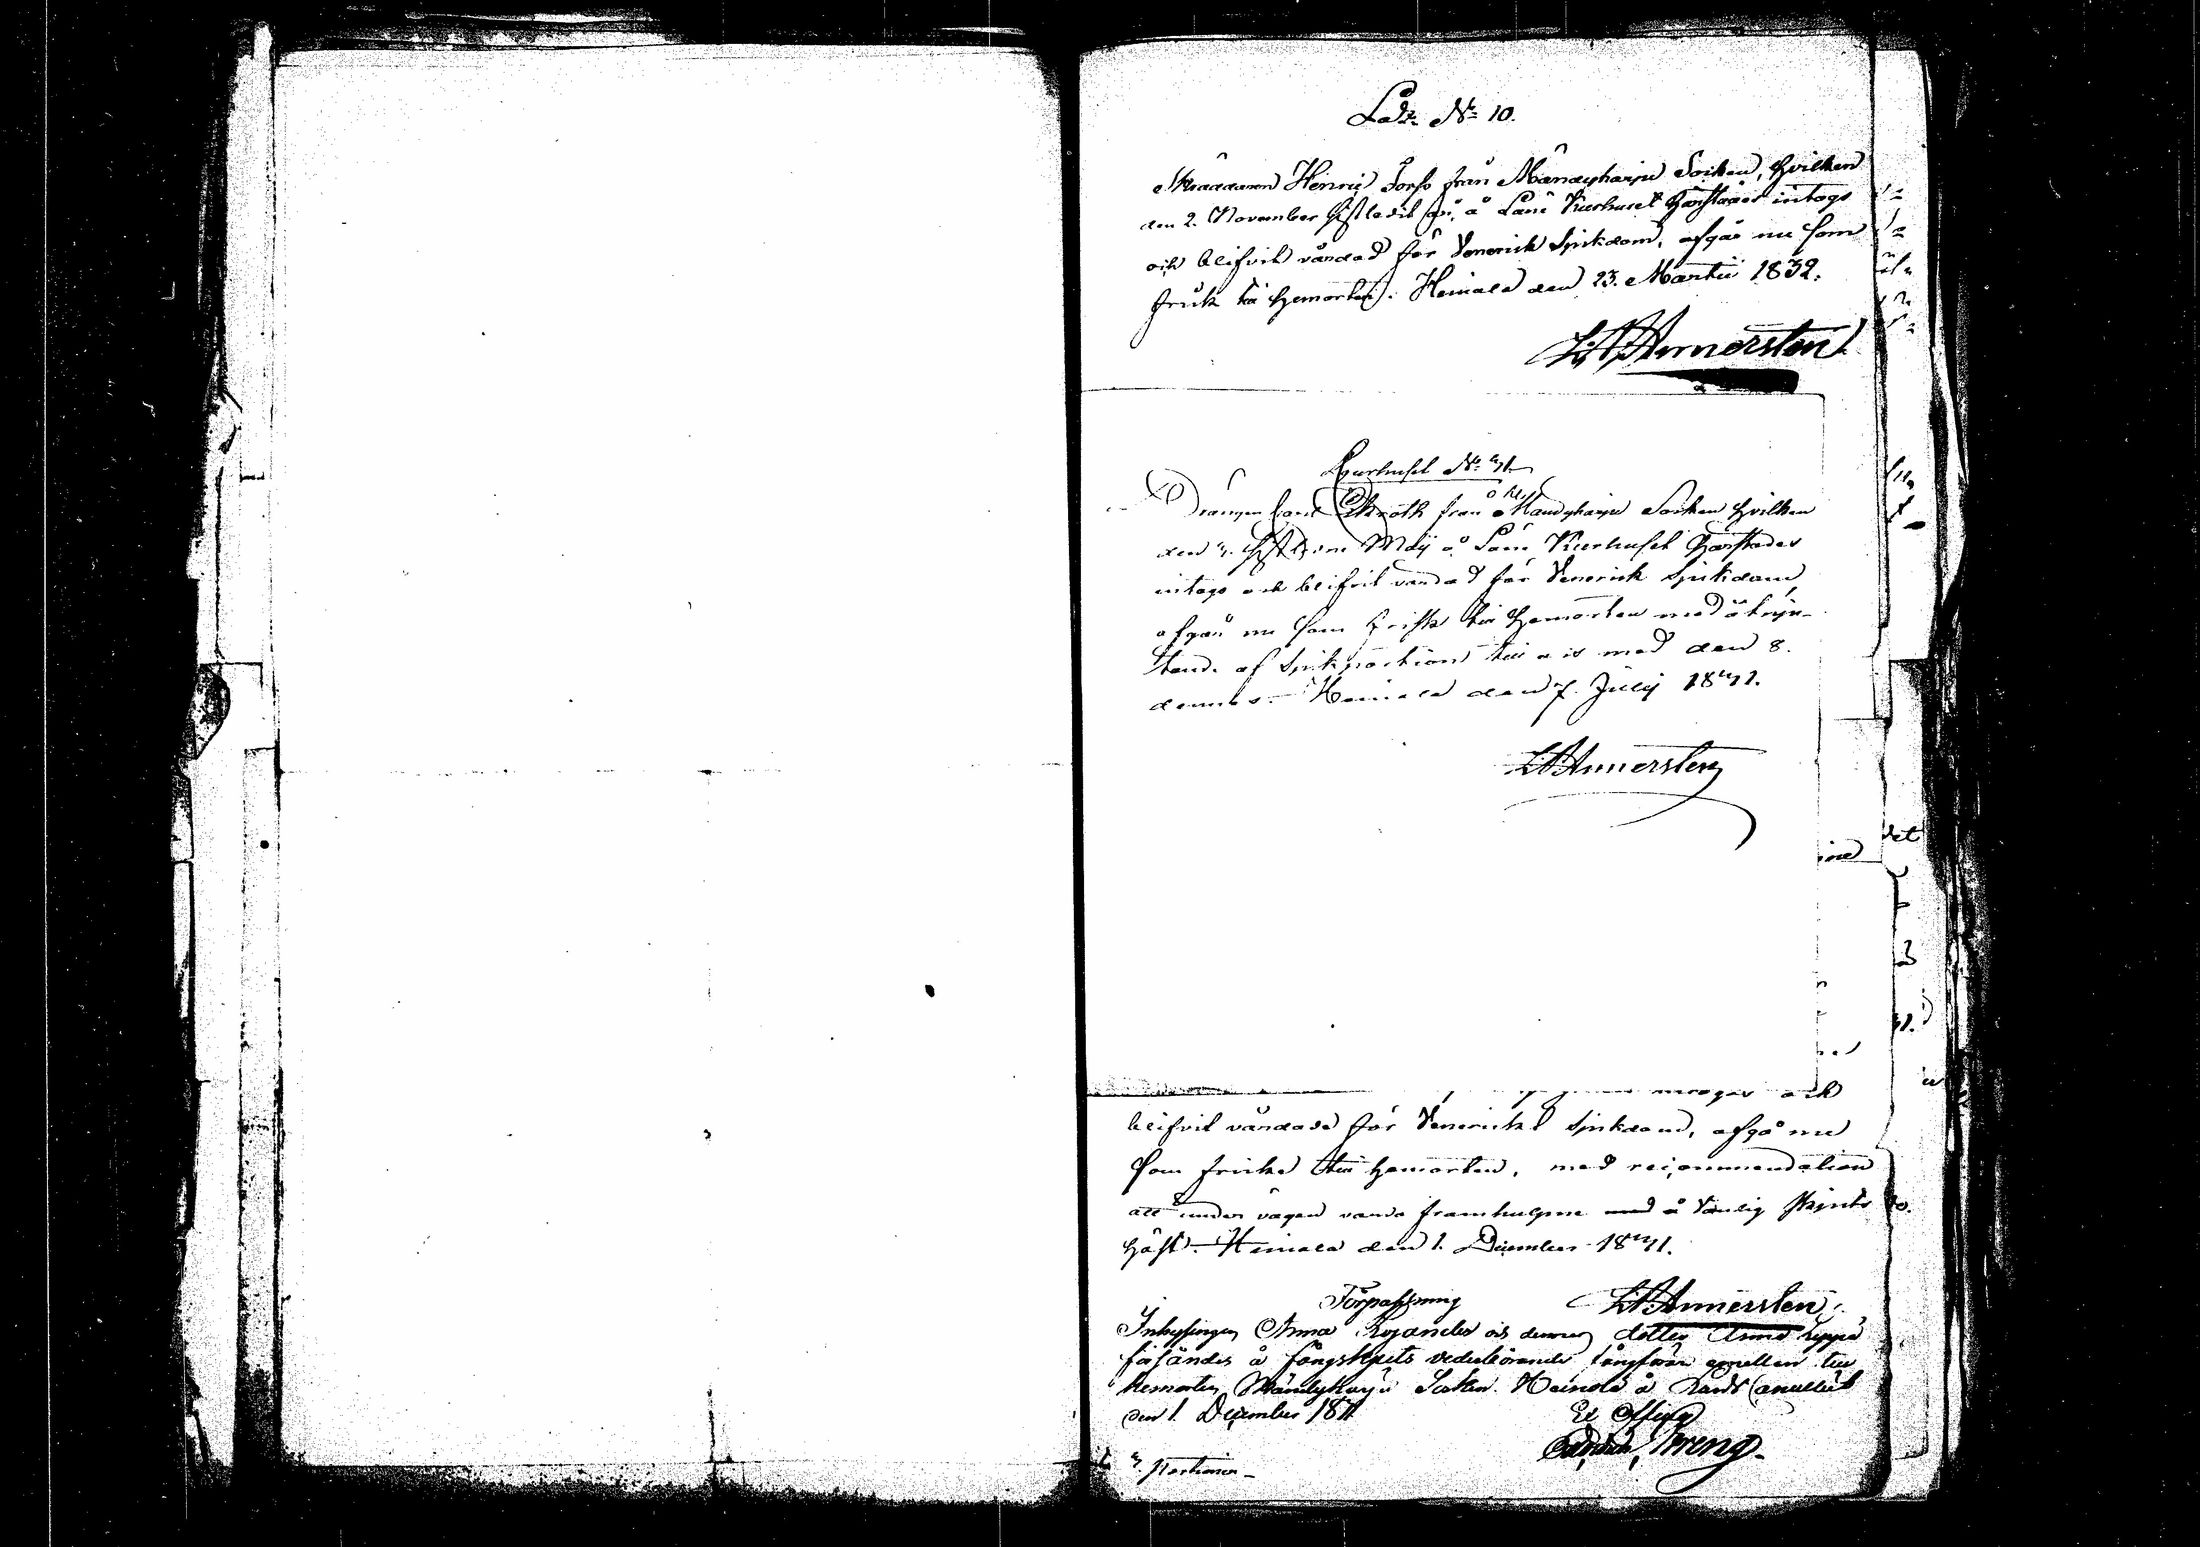 Laz. No 10.
Skräddaren Henric Torfo från Mändyharju Socken, hvilken
den 2. November sistledit år, å Läns Kurhuset härstädes intogs
och blifvit vårdad för Venerisk Sjukdom, afgår nu som
frisk till hemorten. Heinola den 23. Martii 1832.
L A Annersten
Kurhuset No 41.
Drängen från Mändyharju Socken hvilken
den 4. Maij å Läns Kurhuset härstädes
intogs och blifvit vårdad för Venerisk Sjukdom,
afgår nu som frisk till hemorten med åtnju-
tande af Sjukportion till och med den 8.
dennes. Heinola den 7. Julij 1841.
L A Annersten
intogos och
blifvit vårdade för Venerisk Sjukdom, afgå nu
som friske till hemorten, med recommendation
att under vägen varda framhulpne med å vanlig skjuts
häst. Heinola den 1. December 1841.
L A Annersten
Förpassning
Inhysingen Anna och dennes dotter Anna Leppä
försändes å fångskjuts vederbörande emellan till
hemorten Mändyharju Socken. Heinola å Lands Cancelliet
den 1. December 1841
Ex Officio
Streng
4. Portioner